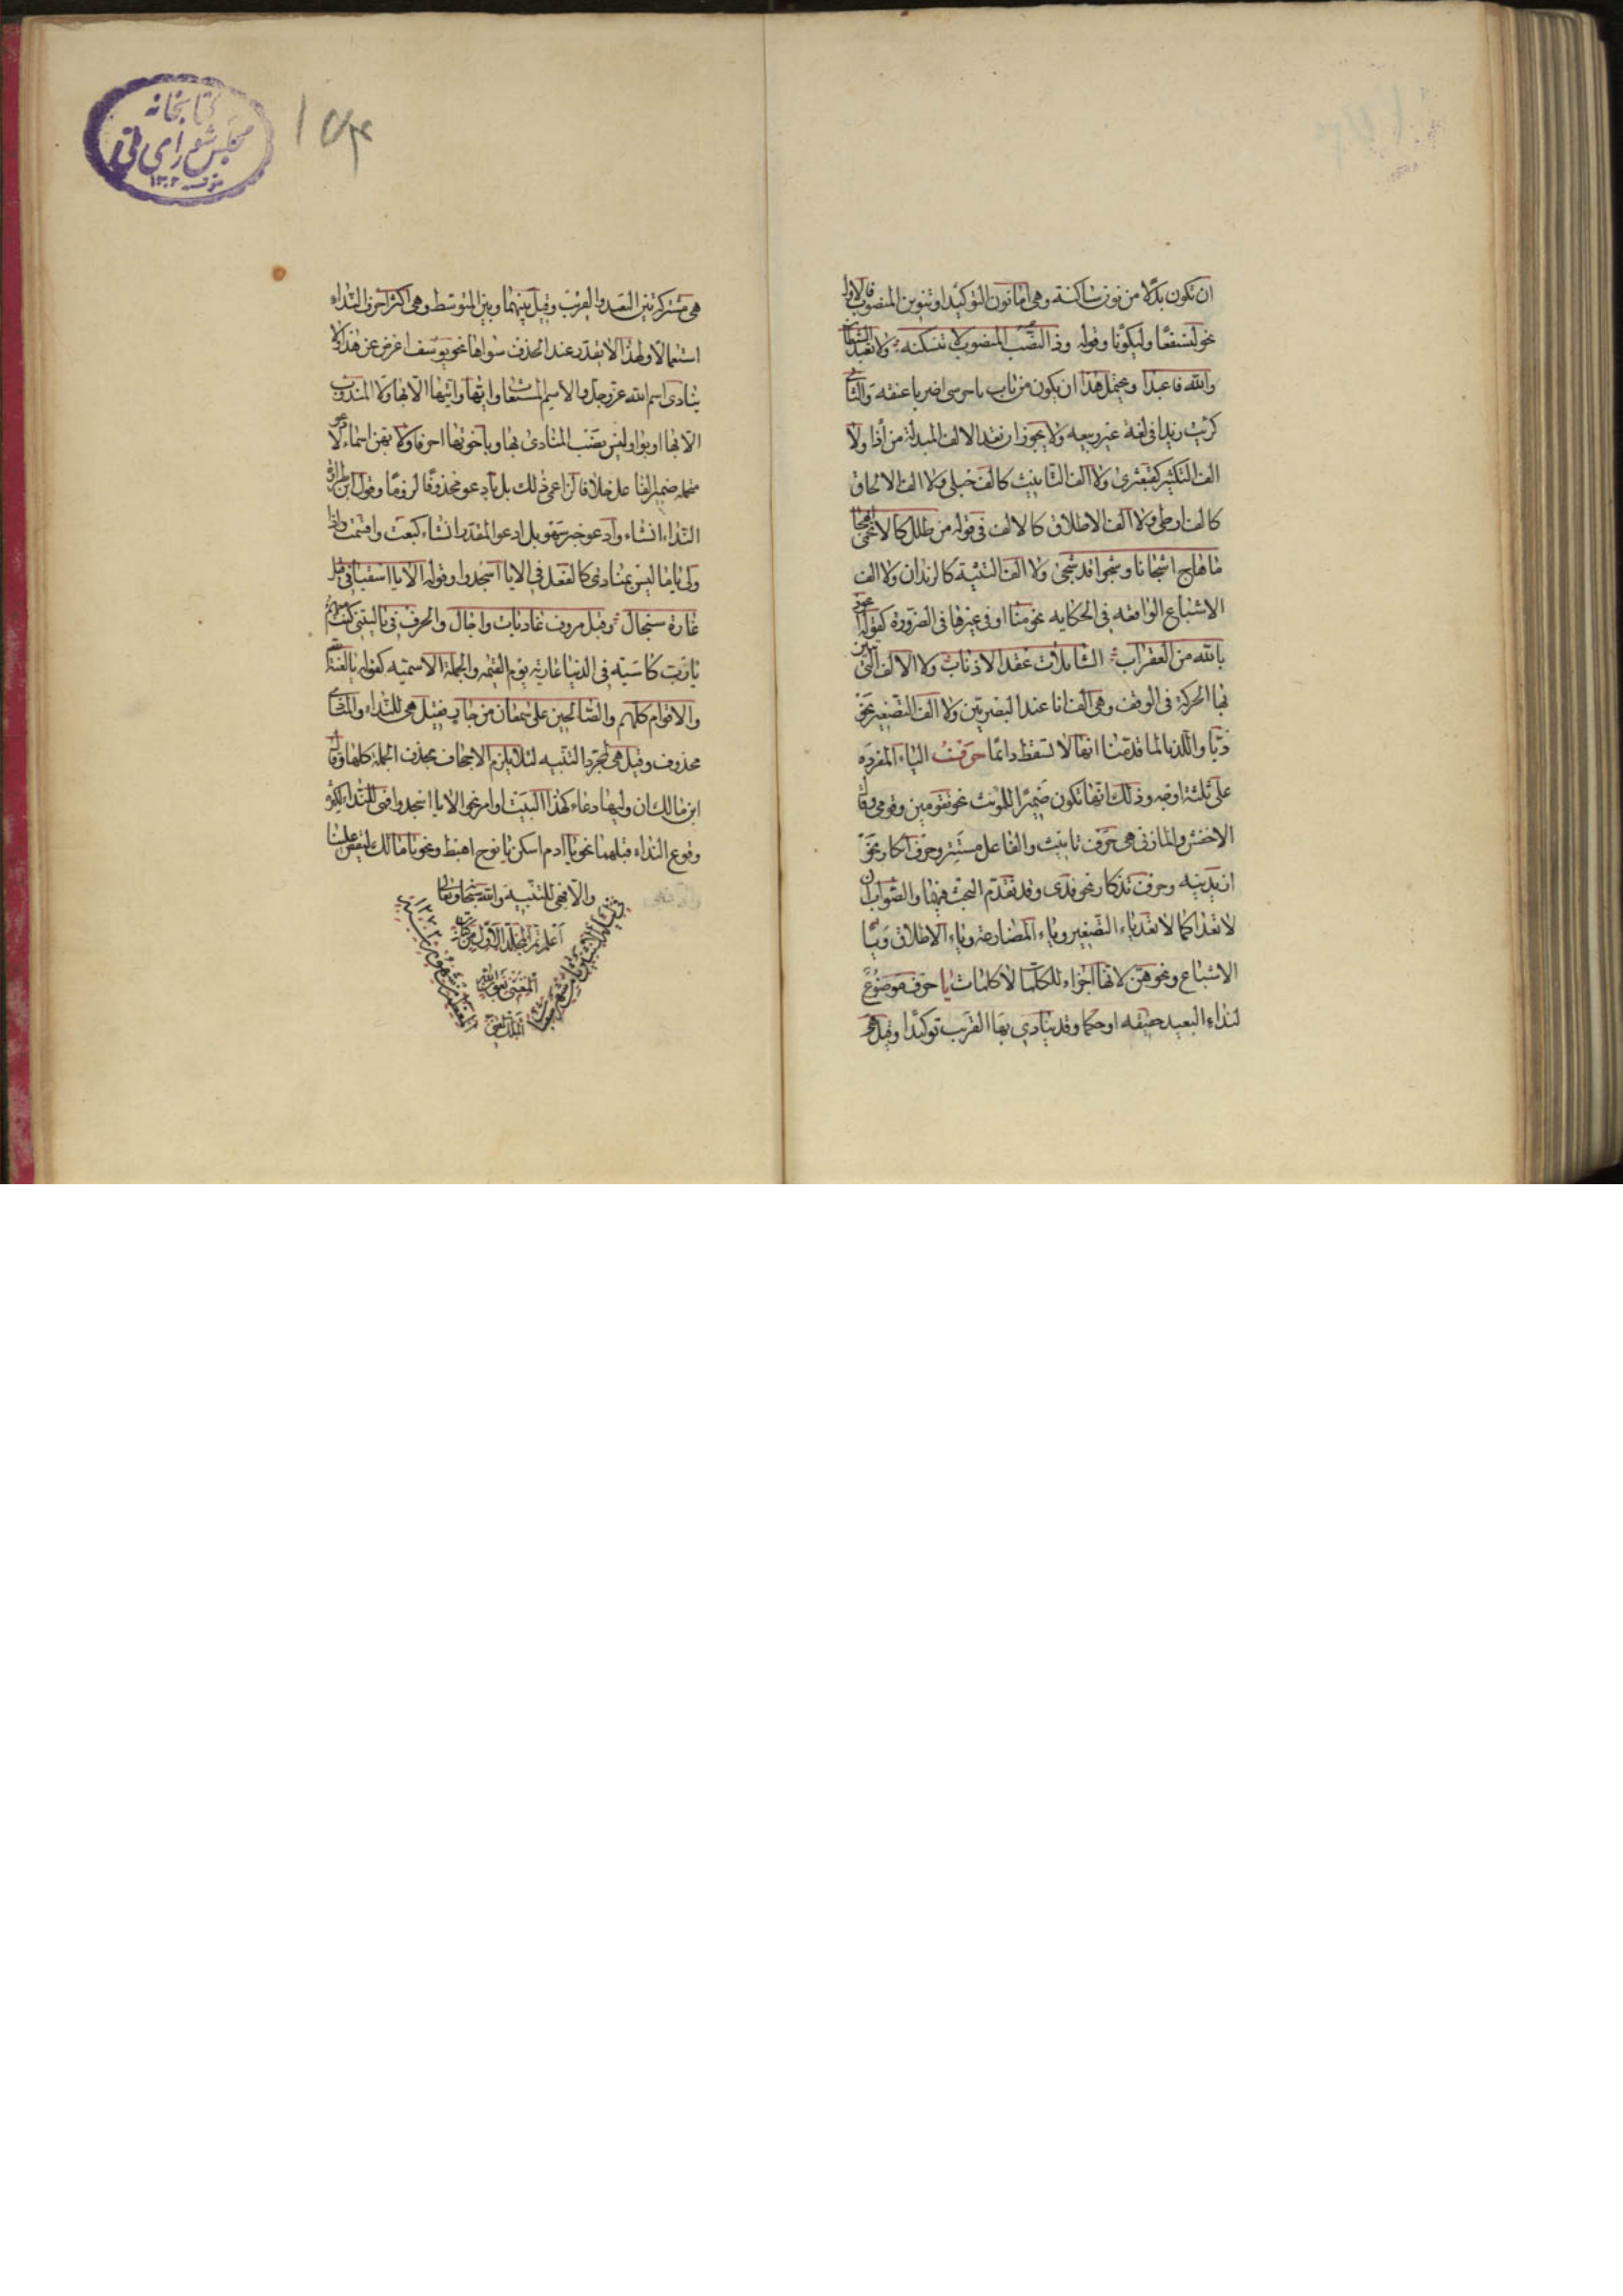 ان تكون بدلا من نون ساكنة وهى اما نون التوكيد او تنوين المنصوب فالاول
نحو لنسفعا وليكونا وقوله وذا النصب المنصوب لا تنسكنه ولا تعبد الشيطان
والله فاعبدا ويحتمل هذا ان يكون من باب يا حرسى اضربا عنقه والثانى
كرايت زيدا فى لغة غير ربيعه ولا يجوز ان تعد الالف المبدلة من اذا ولا
الف التكثير كقبعثرى ولا الف التانيث كالف حبلى ولا الف الالحاق
كالف ارطى ولا الف الاطلاق كالالف فى قوله من طلل كالاتحمى انهجا
ما هاج اشجانا وشجوا قد شجى ولا الف التثنية كالزيدان ولا الف
الاشباع الواقعه فى الحكايه نحو منا او فى غيرها فى الضرورة كقوله اعوذ
بالله من العقراب الشائلات عقد الاذناب ولا الالف التى تبين
بها الحركة فى الوقف وهى الف انا عند البصريين ولا الف التصغير نحو
ذيا واللذيا لما قدمنا انها لا تسقط دائما حرف الياء المفرده
على ثلثة اوجه وذلك انها تكون ضميرا للمونث نحو تقومين وقومى وقال
الاخفش والمازنى هى حرف تانيث والفاعل مستتر وحرف انكار نحو
ازيدنيه وحرف تذكار نحو قدى وقد تقدم البحث فيهما والصواب ان
لا تعدا كما لا تعد ياء التصغير وياء المضارعة وياء الاطلاق وياء
الاشباع ونحوهن لانها اجزاء للكلمات لا كلمات يا حرف موضوع
لنداء البعيد حقيقه او حكما وقد ينادى بها القريب توكيدا وقيل
هى مشتركة بين البعيد والقريب وقيل بينهما وبين المتوسط وهى اكثر احرف النداء
استعمالا ولهذا لا يقدر عند الحذف سواها نحو يوسف اعرض عن هذا ولا
ينادى اسم الله عز وجل والاسم المستغاث وايها وايتها الا بها ولا المندوب
الا بها او بوا وليس نصب المنادى بها وباخوتها احرفا ولا بهن اسماء لادعو
متحملة ضمير الفاعل خلافا لزاعمى ذلك بل بادعو محذوفا لزوما وقول ابن الطراوة
النداء انشاء وادعو خبر سهو بل ادعو المقدر انشاء كبعت واقسمت واذا
ولى يا ما ليس بمنادى كالفعل فى الا يا اسجدوا وقوله الا يا اسقيانى قبل
غارة سنجال وقبل صروف غاديات واجال والحرف فى يا ليتنى كنت معهم
يا رب كاسية فى الدنيا عارية يوم القيمه والجملة الاسميه كقوله يا لعنة الله
والاقوام كلهم والصالحين على سمعان من جار فقيل هى للنداء والمنادى
محذوف وقيل هى لمجرد التنبيه لئلا يلزم الاجحاف بحذف الجملة كلها وقال
ابن مالك ان وليها دعاء كهذا البيت او امر نحو الا يا اسجدوا فهى للنداء لكثرة
وقوع النداء قبلهما نحو يا ادم اسكن يا نوح اهبط ونحو يا مالك ليقض علينا
والا فهى للتنبيه والله سبحانه وتعالى
اعلم تم المجلد الاول من كتاب
المغنى بعون الله
كتابخانه
مجلس شوراى ملى
١٣٠٢